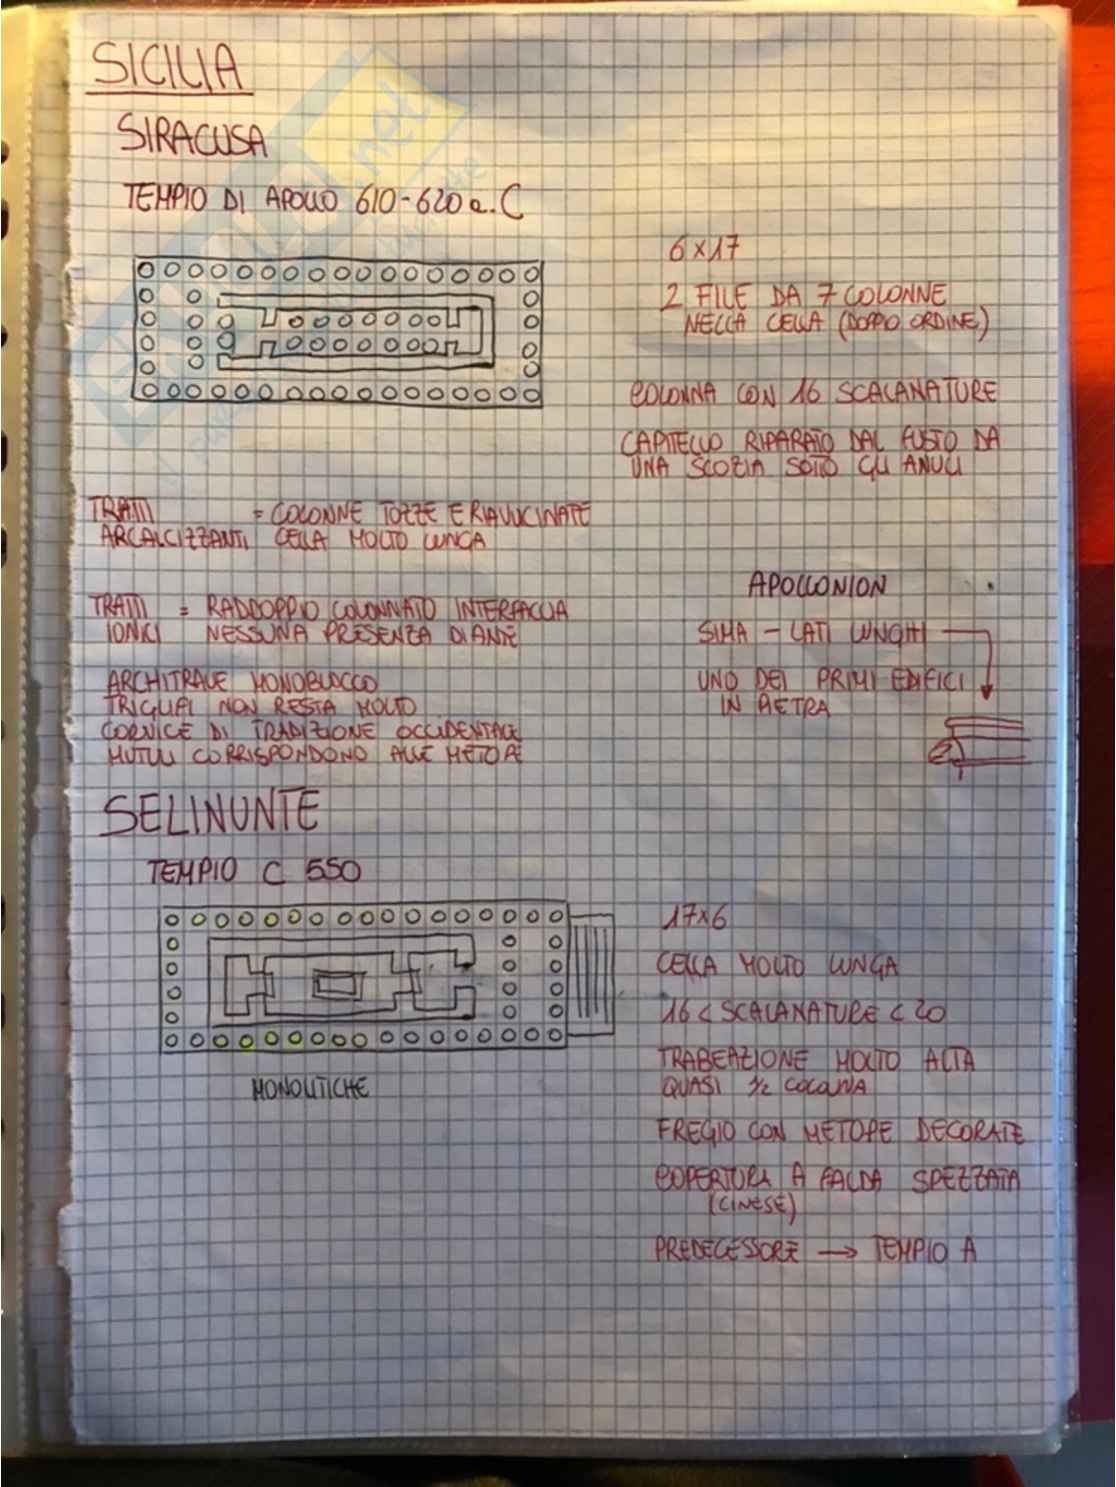 SICILIA
SIRACUSA
TEMPIO DI APOLLO 610-620 a.C
6x17
2 FILE DA 7 COLONNE
NELLA CELLA (DOPPIO ORDINE)
COLONNA CON 16 SCALANATURE
CAPITELLO RIPARATO DAL FUSTO DA
UNA SCOZIA SOTTO GLI ANULI
TRATTI = COLONNE TOZZE E RIAVVICINATE
ARCALCIZZANTI CELLA MOLTO LUNGA
TRATTI = RADDOPPIO COLONNATO INTERFACCIA
IONICI NESSUNA PRESENZA DI ANTE
ARCHITRAVE MONOBLOCCO
TRIGLIFI NON RESTA MOLTO
CORNICE DI TRADIZIONE OCCIDENTALE
MUTULI CORRISPONDONO ALLE METOPE
APOLLONION
SIMA - LATI LUNGHI
UNO DEI PRIMI EDIFICI
IN PIETRA
SELINUNTE
TEMPIO C 550
17x6
CELLA MOLTO LUNGA
16 < SCALANATURE < 20
TRABEAZIONE MOLTO ALTA
QUASI 1/2 COLONNA
FREGIO CON METOPE DECORATE
COPERTURA A FALDA SPEZZATA
(CINESE)
PREDECESSORE → TEMPIO A
MONOLITICHE